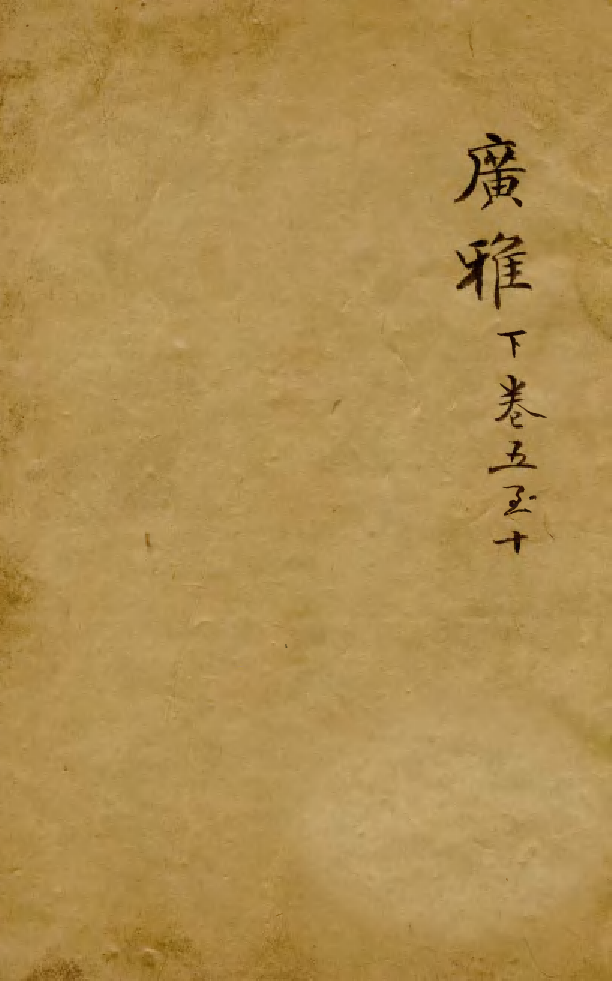 廣雅下卷五至十